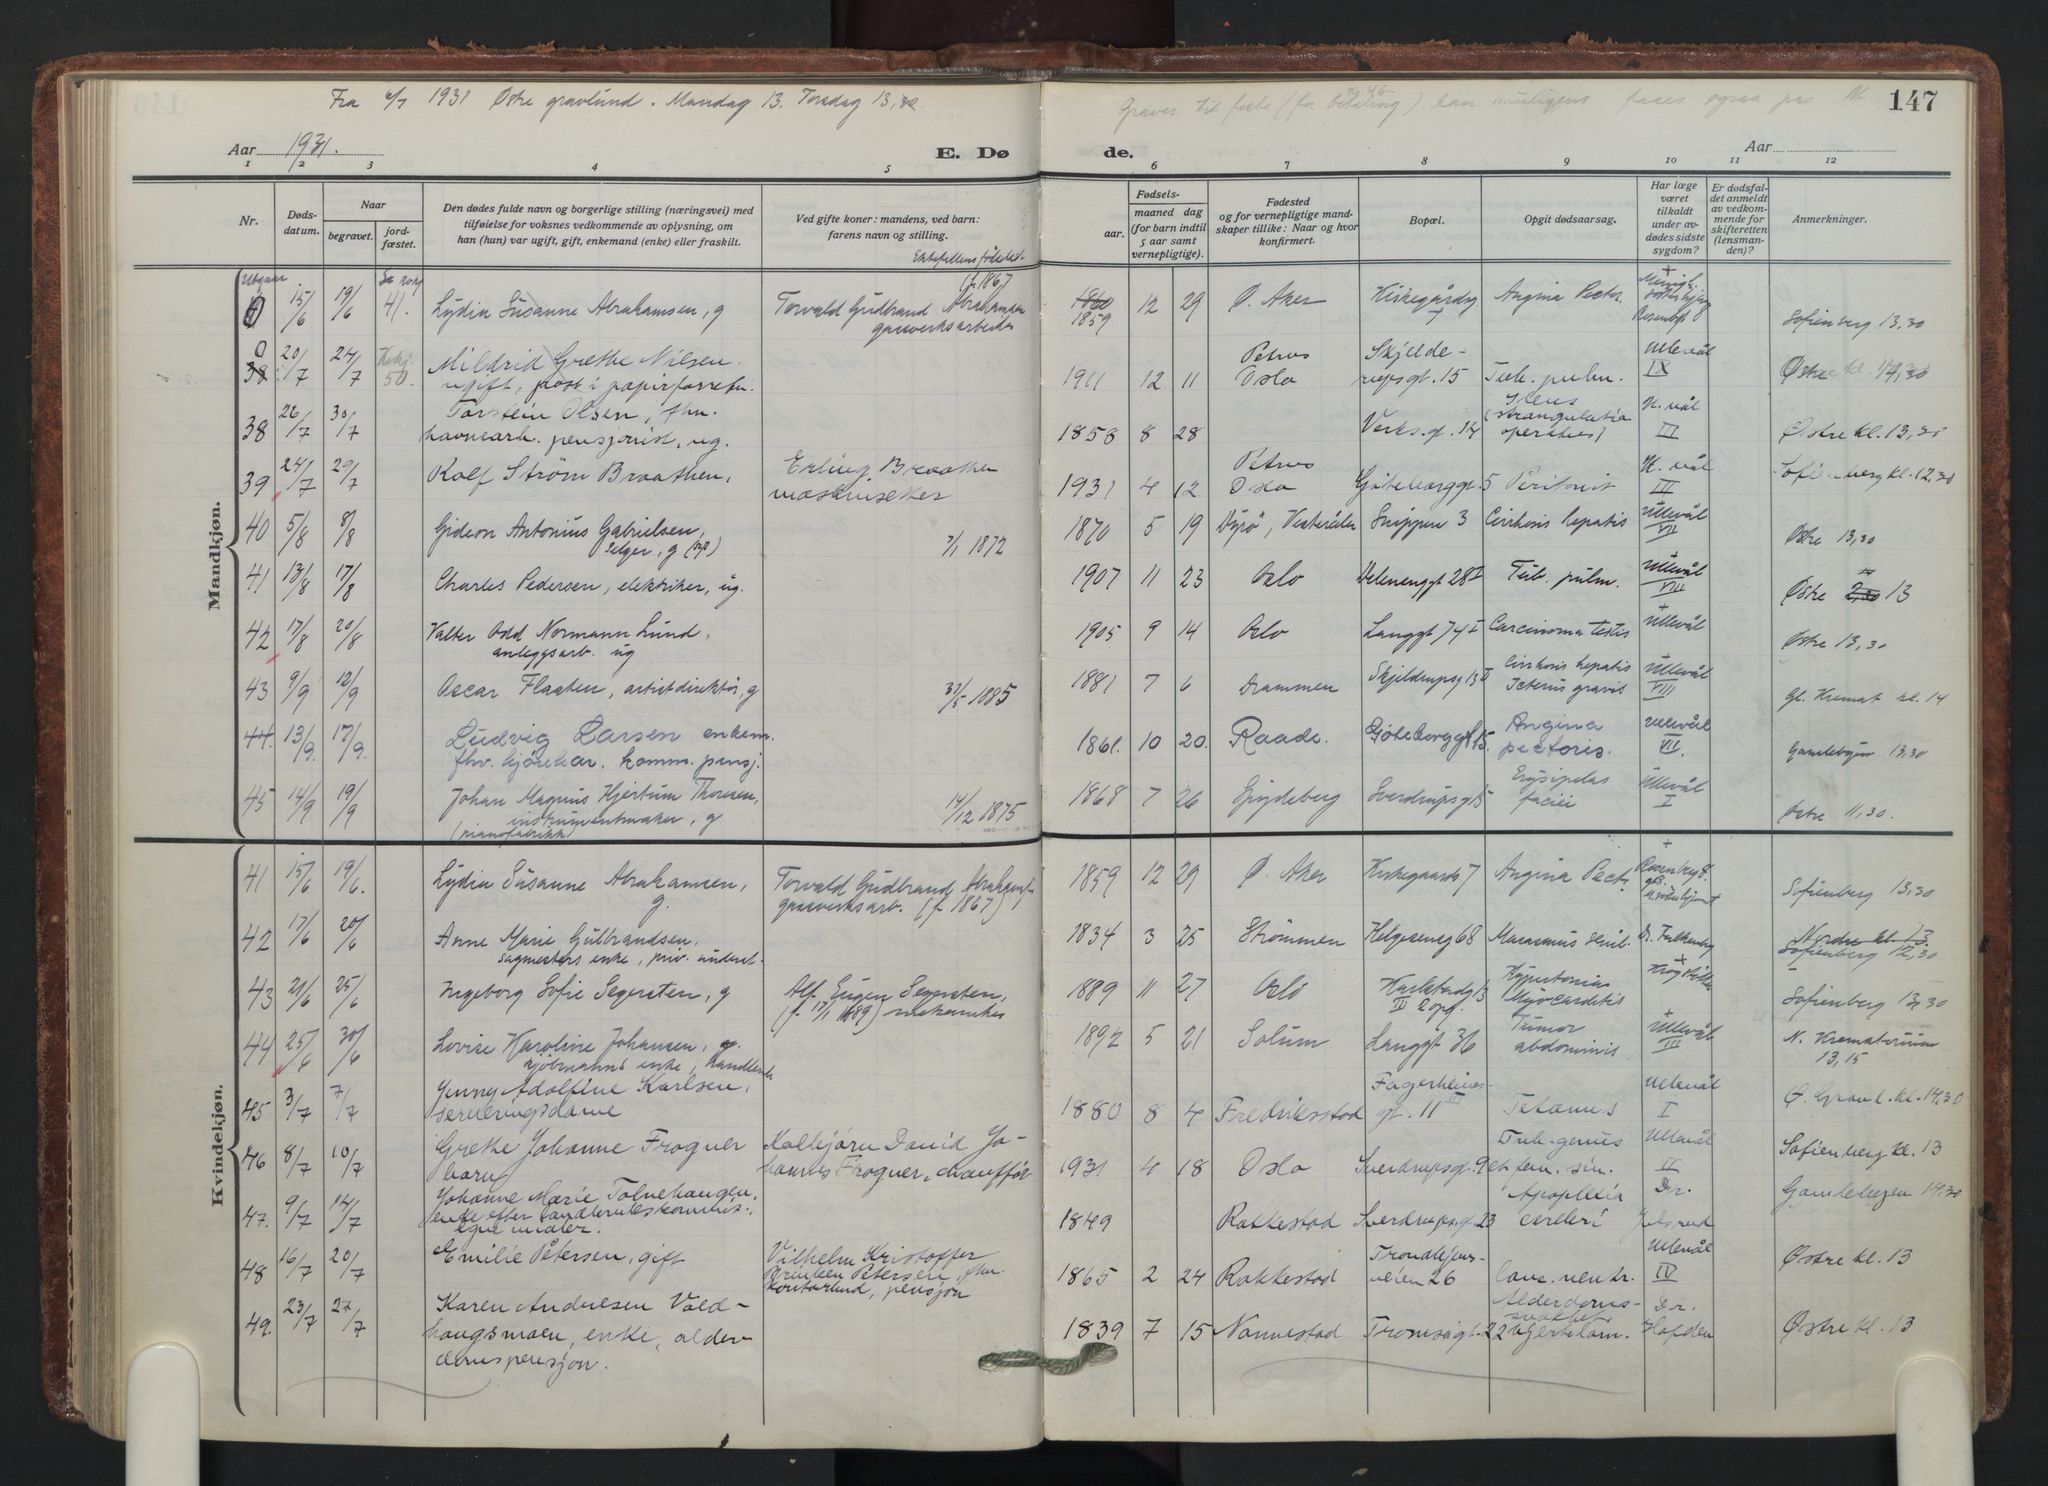 Fra 1931 Østre gravlund. Mandag 13. Torsdag 13,30
Graver til feste (for betaling) kan muligens faaes ogsaa paa
147
Aar 1931.
E. Dø
de.
Aar
1 2 3 4 5 6 7 8 9 10 11 12
Nr.
Døds-
datum.
Naar
begravet.
jord-
fæstet.
Den dødes fulde navn og borgerlige stilling (næringsvei) med
tilføielse for voksnes vedkommende av oplysning, om
han (hun) var ugift, gift, enkemand (enke) eller fraskilt.
Ved gifte koner: mandens, ved barn:
farens navn og stilling.
Fødsels-
aar.
maaned dag
(for barn indtil
5 aar samt
vernepligtige).
Fødested
og for vernepligtige mand-
skaper tillike: Naar og hvor
konfirmert.
Bopæl.
Opgit dødsaarsag.
Har læge
været
tilkaldt
under av-
dødes sidste
sygdom?
Er dødsfal-
det anmeldt
av vedkom-
mende for
skifteretten
(lensman-
den)?
Anmerkninger.
Mandkjøn.
Utgaar
15/6 19/6 41. Lydia Susanne Abrahamsen, g
(f. 1867)
Torvald Gudbrand Abrahamsen
gasverksarbeider
1860
1859 12 29 Ø. Aker Kirkegårdsg 7 Angina Pector. Sofienberg 13,30
38 20/7 24/7 50. Mildrid Grethe Nilsen.
ugift, post i papirforretn.
1911 12 11 Petrus
Oslo Skjelde-
rupsgt. 15 Tub. pulm. Ullevål
IX Østre kl. 14,30
38 26/7 30/7 Torstein Olsen, fhv.
havnearb. pensjonist, ug.
1858 8 28 Verks.gt. 14 Ileus
(strangulatio
operatus) U. vål
III Østre kl. 13,30
39 24/7 29/7 Rolf Strøm Braathen,
Erling Braathen
maskinsetter
1931 4 12 Petrus
Oslo Göteborggt. 5 Peritonit U. vål
III Sofienberg kl. 12,30
40 5/8 8/8 Gideon Antonius Gabrielsen,
Selger, g
7/1 1872
1870 5 19 Dyrö, Vesterålen Snippen 3 Cirrhosis hepatis Ullevål
VII Østre 13,30
41 13/8 17/8 Charles Pedersen, elektriker, ug.
1907 11 23 Oslo Delenenggt 28 I Tub. pulm. Ullevål
VIII Østre 13
42 17/8 20/8 Valter Odd Normann Lund,
anleggsarb. ug
1905 9 14 Oslo Langgt 74 I Carcinoma testis Ullevål Østre 13,30
43 9/9 12/9 Oscar Flaaten, artistdirektør, g
1885
1881 7 6 Drammen Skjeldrupsg 13 II Cirrhosis hepatis
Icterus gravis Ullevål
VIII Gl. Kremat kl. 14
44. 13/9. 17/9. Ludvig Larsen enkem.
fhv. kjörekar. komm. pensj.
1861. 10 20. Raade. Göteborggt 15. Angina
pectoris. Ullevål
VII. Gamlebyen 13,30
45 14/9 19/9 Johan Magnus Hjertum Thoresen,
instrumentmaker, g
(pianofabrikk)
14/12 1875
1868 7 26 Spydeberg Sverdrupsgt 5 Erysipelas
faciei Ullevål
I Østre 11,30.
Kvindekjøn.
41 15/6 19/6. Lydia Susanne Abrahamsen,
g.
Torvald Gudbrand Abrahamsen
gasverksarb. (f. 1867)
1859 12 29 Ø. Aker Kirkegaardsg 7 Angina Pect. Sofienberg 13,30
42 17/6 20/6 Anne Marie Gulbrandsen,
sagmesters enke, priv. underst.
1834 3 25 Strömmen Helgesensg 68 Marasmus senil. Dr. Falkenberg Nordre kl. 13
Sofienberg 12,30
43 21/6 25/6 Ingeborg Sofie Segersten, g
Alf Eugen Segersten,
(f. 17/1 1889) mekaniker
1889 11 27 Oslo Karlstadg 13
IV 2 opg. Hypertonia
Myocarditis Krogstøtten Sofienberg 13,30
44 25/6 30/6 Lovise Karoline Johansen,
kjöbmanns enke, handlende
1892 5 21 Solum Langgt 36 Tumor
abdominis Ullevål
III N. Krematorium
13,15
45 3/7 7/7 Jenny Adolfine Karlsen,
serveringsdame
1880 8 4 Fredriksstad Fagerheims-
gt. 11 III Tetanus Ullevål
I Ø. Gravl. kl. 14,30
46 8/7 10/7 Grethe Johanne Frogner
barn
Kolbjørn David Jo-
hannes Frogner, chauffør
1931 4 18 Oslo Sverdrupsgt. 9 Tub. genus
et fem. sin. Ullevål
II Sofienberg kl. 13
47. 9/7 14/7 Johanne Marie Tolvehaugen,
enke efter
egne midler.
1849 Rakkestad Sverdrupsgt. 23 Apoplexia
cerebri Dr. Gamlebyen 14.30
48 16/7 20/7 Emilie Petersen, gift
Vilhelm Kristoffer
Petersen, fhv.
kontorbud, pensjon
1865 2 24 Rakkestad Trondhjems-
veien 26 Canc. ventr. Ullevål
IV Østre kl. 13
49. 23/7 27/7 Karen Andresen Vold-
haugsmoen, enke, alder-
domspensjon.
1839 7 15 Nannestad Tromsøgt. 22 Alderdoms-
svakhet
Hjertelam. Dr.
Hofden Østre kl. 13